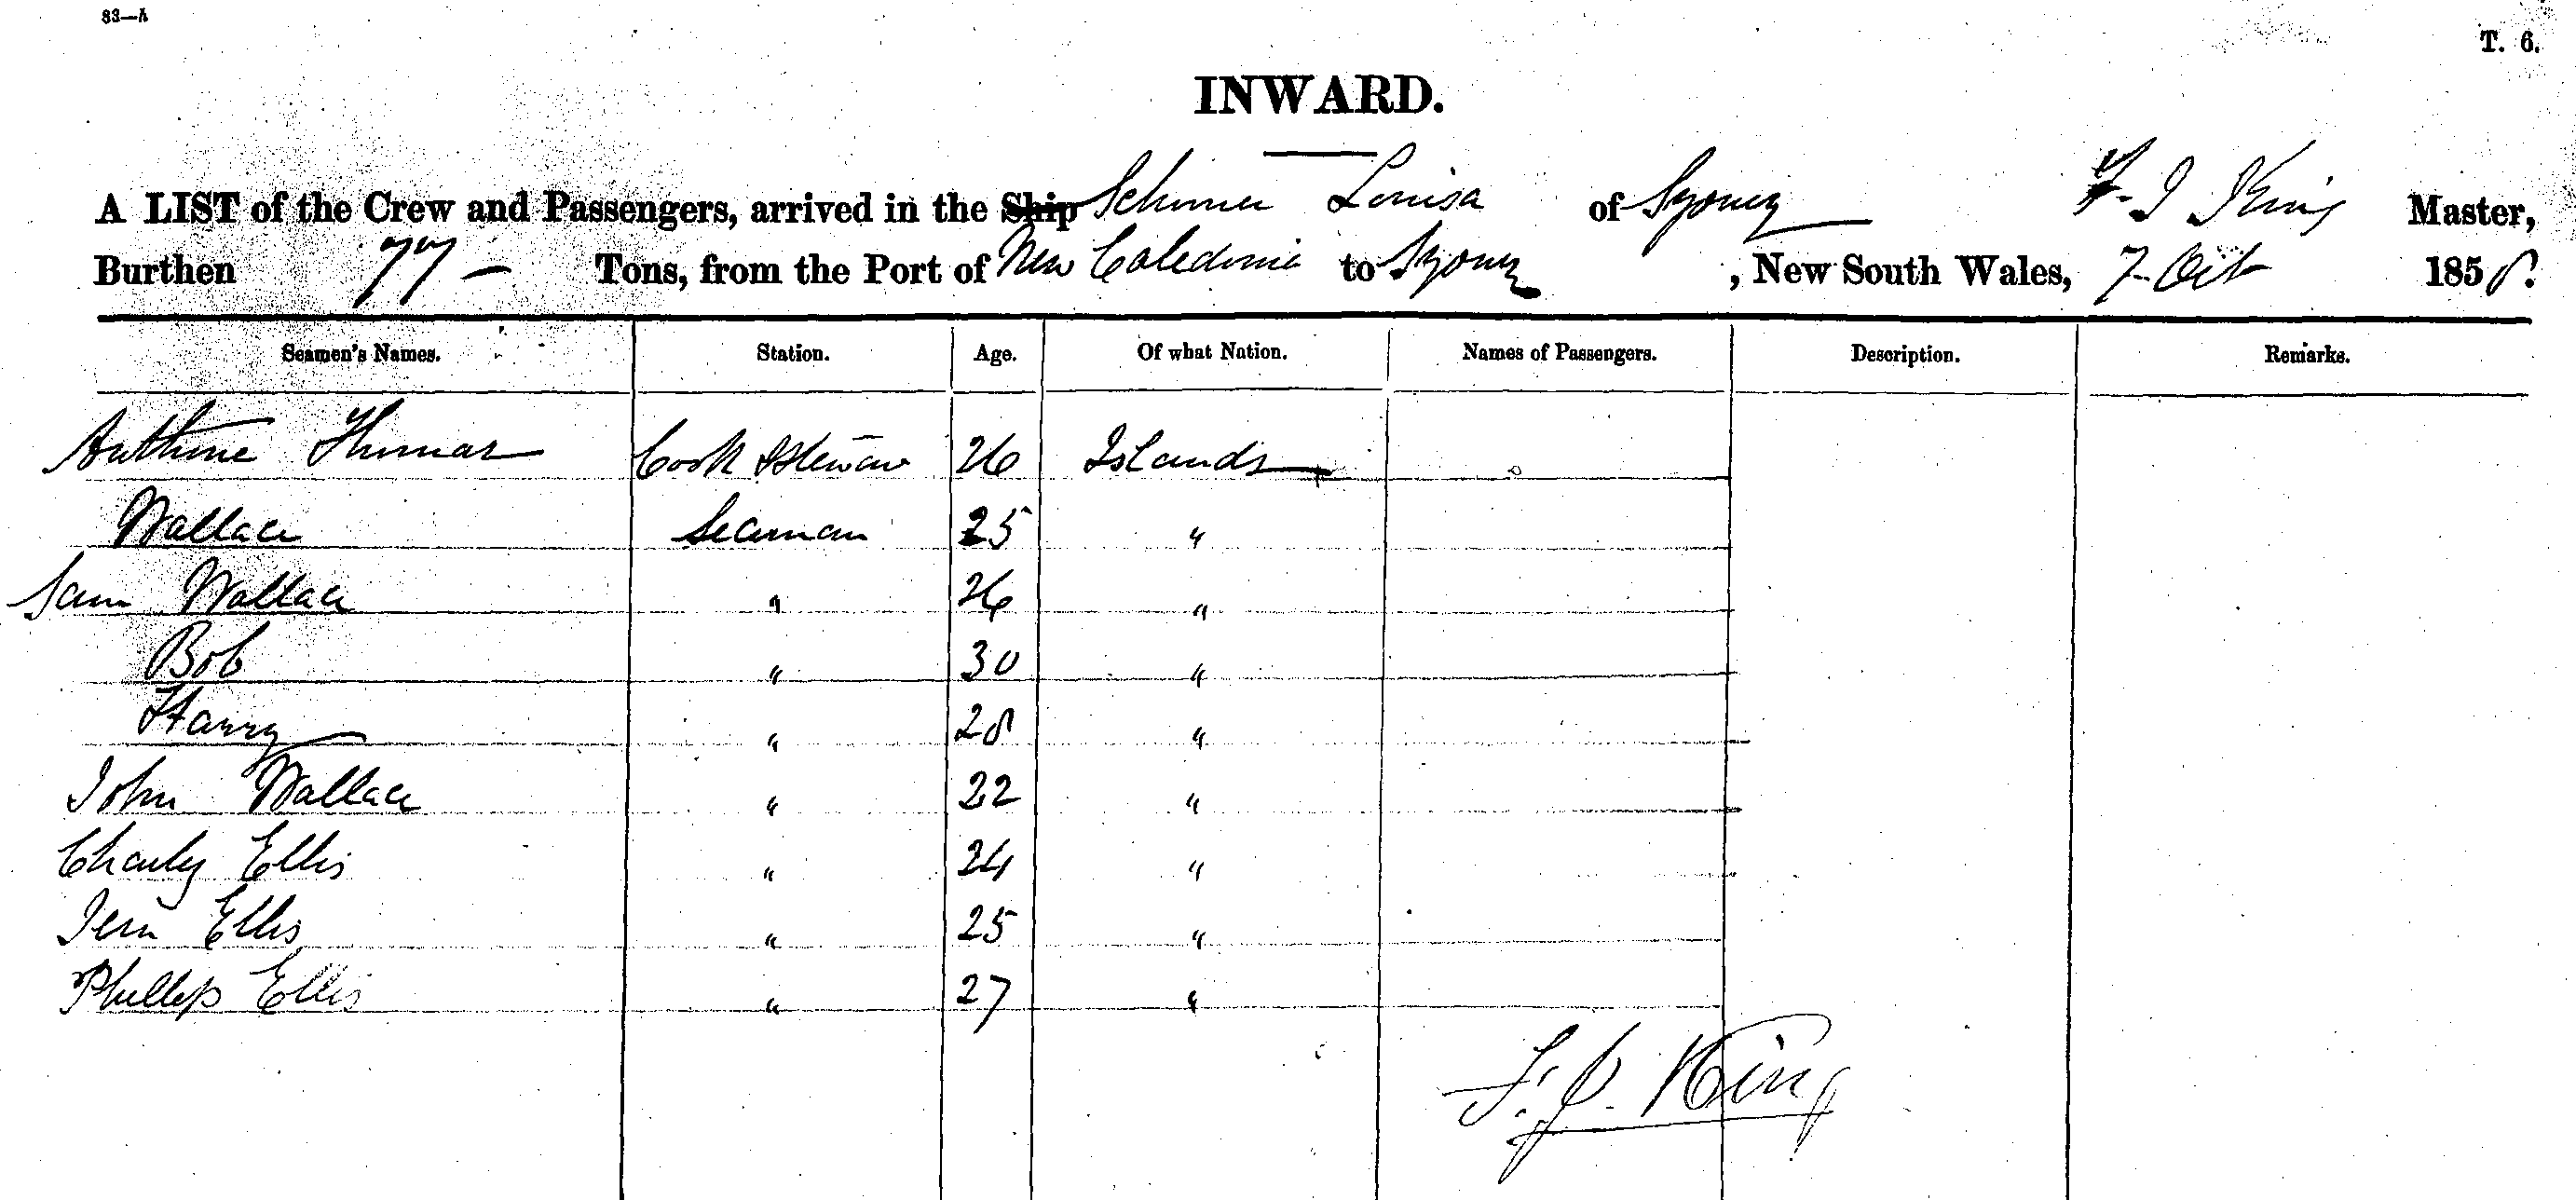 83—A
T. 6.
INWARD.
A LIST of the Crew and Passengers, arrived in the Ship Schooner Louisa of Sydney F. J King Master,
Burthen 77 — Tons, from the Port of New Caledonia to Sydney, New South Wales, 7 Oct 1858.
Seamen's Names. Station. Age. Of what Nation. Names of Passengers. Description. Remarks.
Thomas Cook & Steward 26 Islands
Wallace Seaman 25 "
Sam Wallace " 26 "
Bob " 30 "
Harry " 28 "
John Wallace " 22 "
Charley Ellis " 24 "
Jem Ellis " 25 "
Phillip Ellis " 27 "
F. J. King